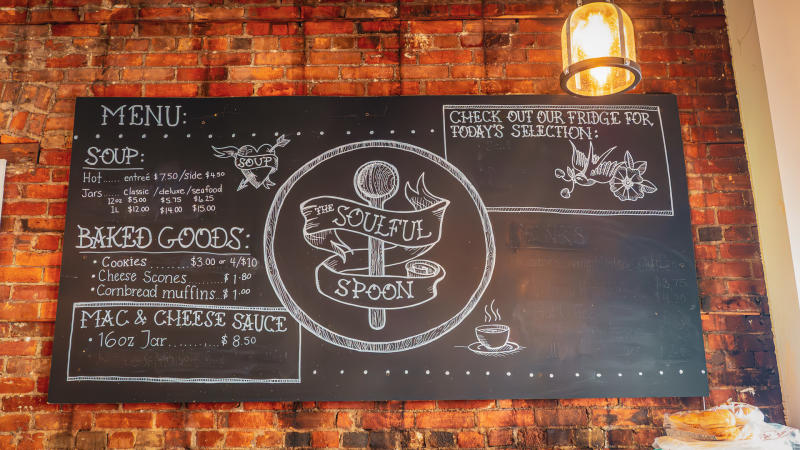 MENU:
SOUP:
SOUP
Hot...... entreé $7.50/side $4.50
Jars..... classic / deluxe / seafood
12oz $5.00 $5.75 $6.25
1L $12.00 $14.00 $15.00
BAKED GOODS:
• Cookies.............$3.00 or 4/$10
• Cheese Scones.........$1.80
• Cornbread muffins...$1.00
MAC & CHEESE SAUCE
• 16oz Jar..........$8.50
THE SOULFUL
SPOON
CHECK OUT OUR FRIDGE FOR
TODAY'S SELECTION: